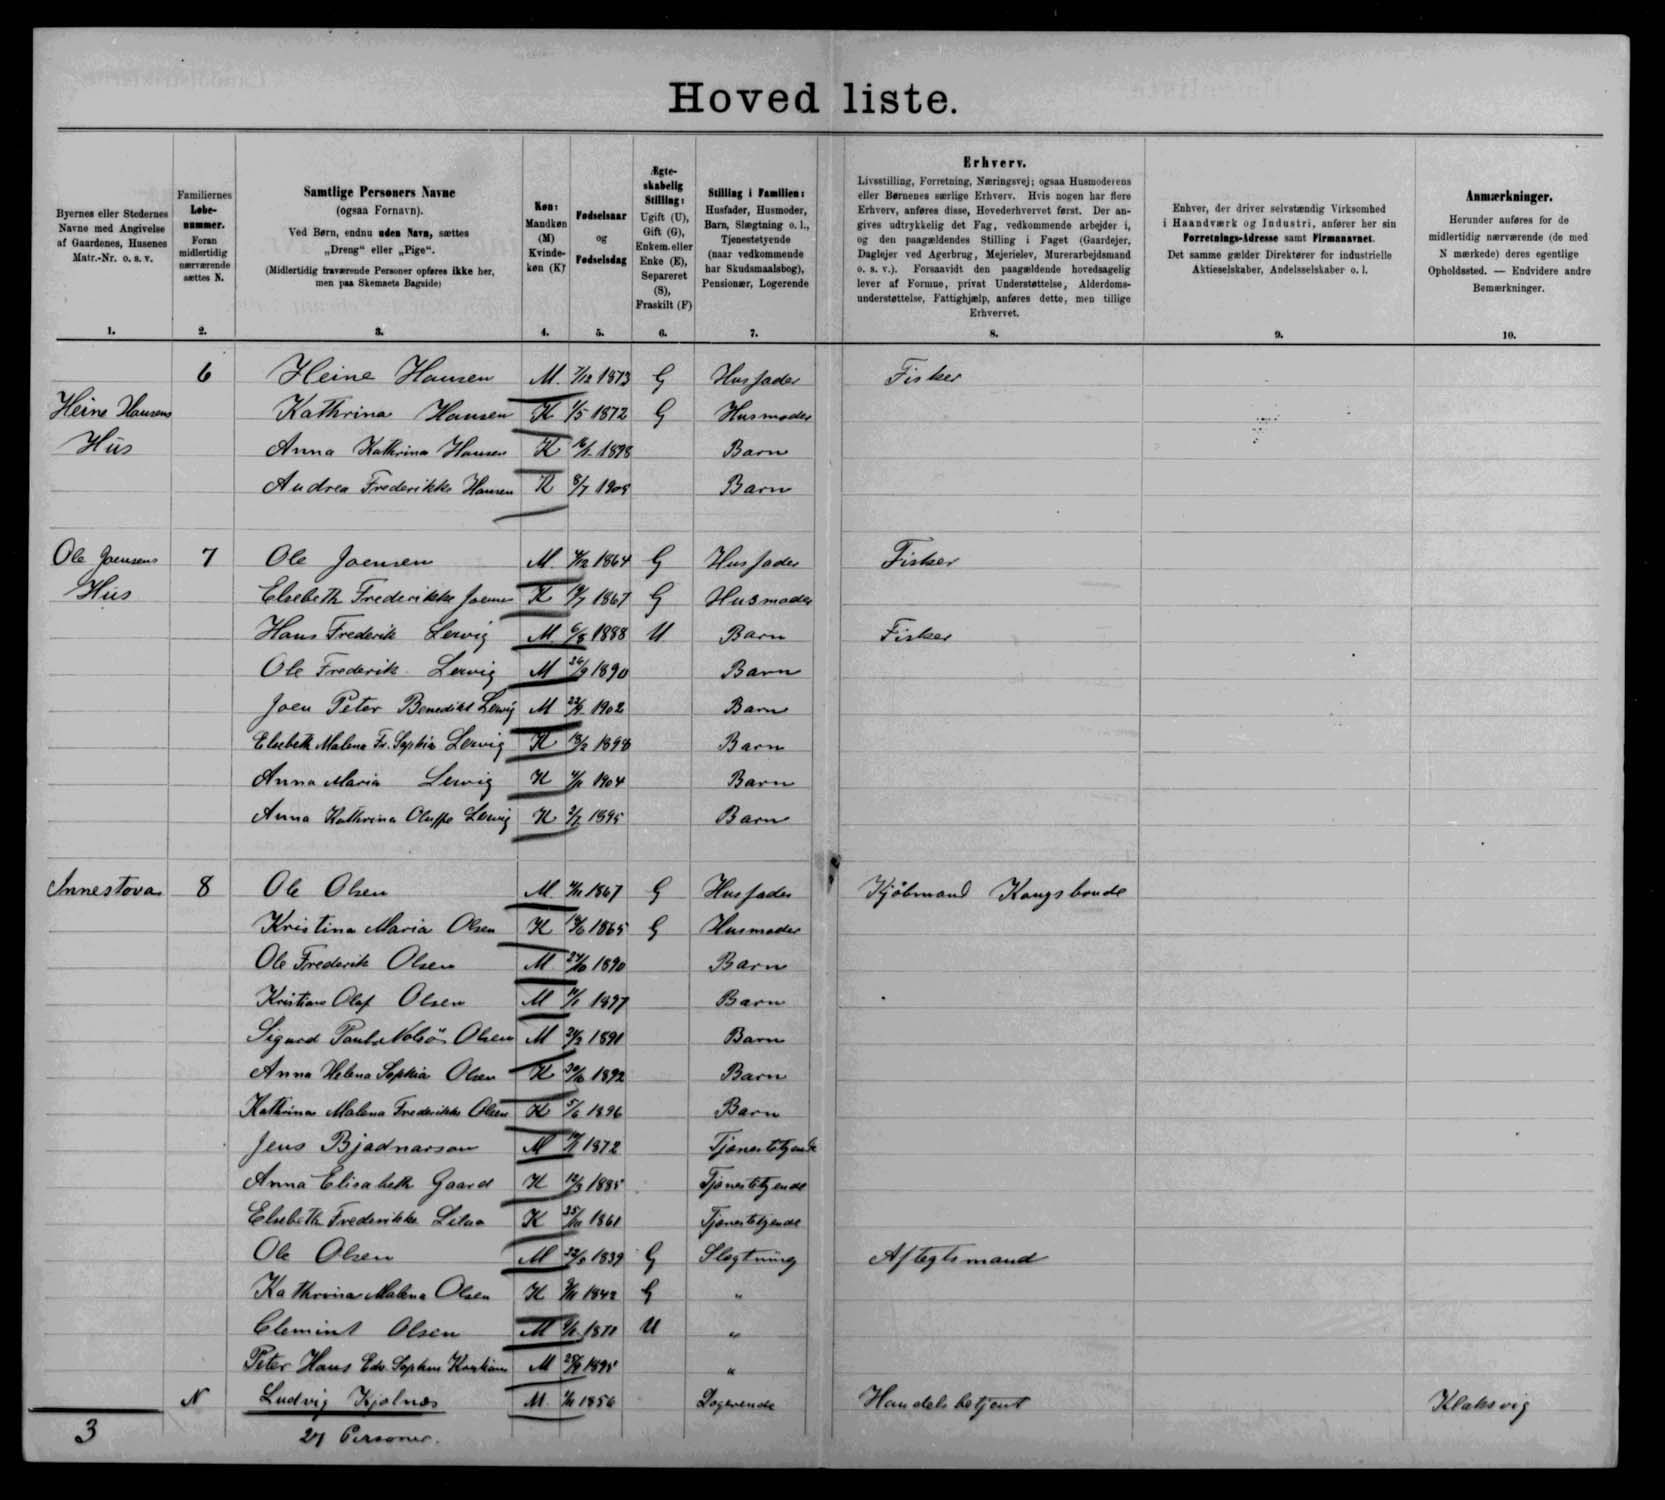 Hoved liste.
Byernes eller Stedernes
Navne med Angivelse
af Gaardenes, Husenes
Matr.-Nr. o. s. v.
1.
Familiernes
Løbe-
nummer.
Foran
midlertidig
nærværende
sættes N.
2.
Samtlige Personers Navne
(ogsaa Fornavn).
Ved Børn, endnu uden Navn, sættes
„Dreng“ eller „Pige“.
(Midlertidig fraværende Personer opføres ikke her,
men paa Skemaets Bagside)
3.
Køn:
Mandkøn
(M)
Kvinde-
køn (K)
4.
Fødselsaar
og
Fødselsdag
5.
Ægte-
skabelig
Stilling:
Ugift (U),
Gift (G),
Enkem. eller
Enke (E),
Separeret
(S),
Fraskilt (F)
6.
Stilling i Familien:
Husfader, Husmoder,
Barn, Slægtning o. l.,
Tjenestetyende
(naar vedkommende
har Skudsmaalsbog),
Pensionær, Logerende
7.
Erhverv.
Livsstilling, Forretning, Næringsvej; ogsaa Husmoderens
eller Børnenes særlige Erhverv. Hvis nogen har flere
Erhverv, anføres disse, Hovederhvervet først. Der an-
gives udtrykkelig det Fag, vedkommende arbejder i,
og den paagældendes Stilling i Faget (Gaardejer,
Daglejer ved Agerbrug, Mejerielev, Murerarbejdsmand
o. s. v.). Forsaavidt den paagældende hovedsagelig
lever af Formue, privat Understøttelse, Alderdoms-
understøttelse, Fattighjælp, anføres dette, men tillige
Erhvervet.
8.
Enhver, der driver selvstændig Virksomhed
i Haandværk og Industri, anfører her sin
Forretnings-Adresse samt Firmanavnet.
Det samme gælder Direktører for industrielle
Aktieselskaber, Andelsselskaber o. l.
9.
Anmærkninger.
Herunder anføres for de
midlertidig nærværende (de med
N mærkede) deres egentlige
Opholdssted. — Endvidere andre
Bemærkninger.
10.
6 Heine Hansen M. 7/12 1873 G Husfader Fisker
Heine Hansens Kathrina Hansen K 1/5 1872 G Husmoder
Hús Anna Kathrina Hansen K 1898 Barn
Andrea Frederikke Hansen K 8/7 1905 Barn
Ole Joensens 7 Ole Joensen M. 1864 G Husfader Fisker
Hús Elsebeth Frederikke Joensen K 1867 G Husmoder
Hans Frederik Lervig M. 6/8 1888 U Barn Fisker
Ole Frederik Lervig M 26/9 1890 Barn
Joen Peter Benedikt Lervig M 1902 Barn
Elsebeth Malena Fr. Sophia Lervig K 18/2 1898 Barn
Anna Maria Lervig K 1904 Barn
Anna Kathrina Oluffa Lervig K 1895 Barn
Innestova 8 Ole Olsen M. 1867 G Husfader Kjøbmand Kongsbonde
Kristina Maria Olsen K 1865 G Husmoder
Ole Frederik Olsen M. 24/10 1890 Barn
Kristian Olaf Olsen M 1897 Barn
Sigurd Paul Nolsö Olsen M 1891 Barn
Anna Helena Sophia Olsen K 1892 Barn
Kathrina Malena Frederikke Olsen K 5/6 1896 Barn
Jens Bjadnarson M 1872 Tjenestetyende
Anna Elisabeth Gaard K 12/3 1885 Tjenestetyende
Elsebeth Frederikke K 1861 Tjenestetyende
Ole Olsen M 1839 G Slegtning Aftegtsmand
Kathrina Malena Olsen K 1842 G "
Clemint Olsen M 1870 U "
Peter Hans Edv. Sophus Kristian M 1895 "
N Ludvig Kjølnæs M. 1856 Logerende Handelsbetjent Klaksvig
3 27 Personer.